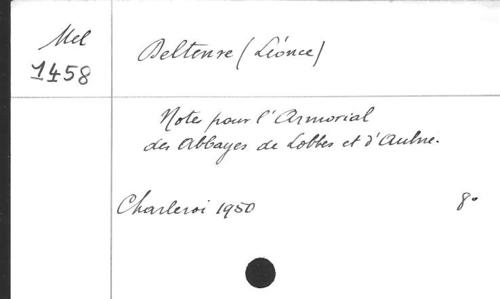 Mel
1458
Deltenre (Léonce)
Notes pour l'Armorial
des Abbayes de Lobbes et d'Aulne.
Charleroi 1950
8°